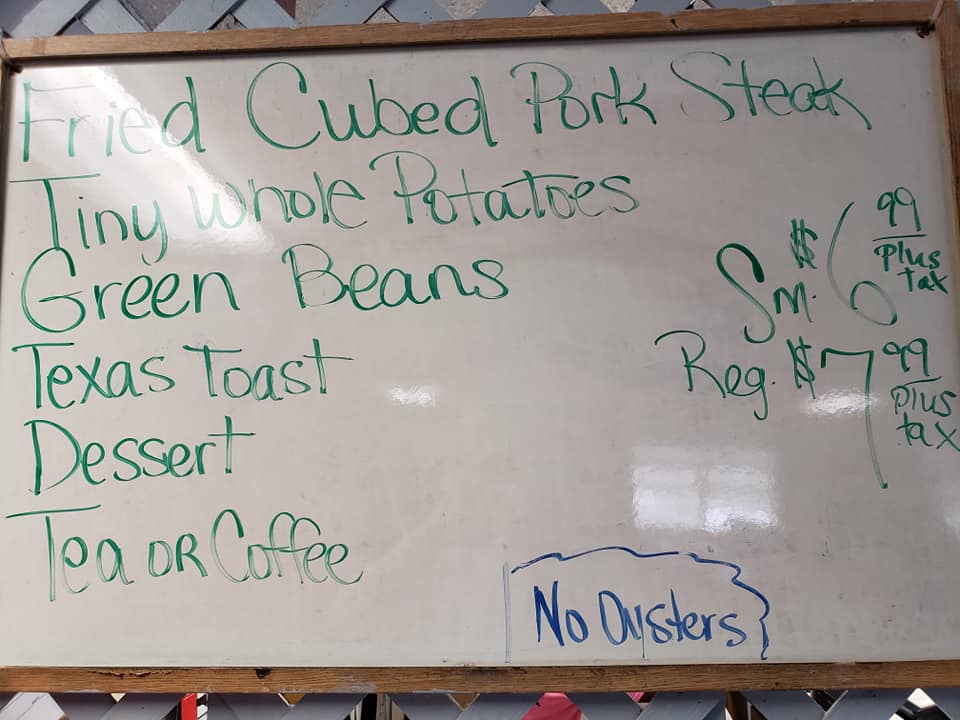 Fried Cubed Pork Steak
Tiny whole Potatoes
Green Beans
Texas Toast
Dessert
Tea OR Coffee
Sm. $6 99 plus tax
Reg. $7 99 plus tax
No Oysters